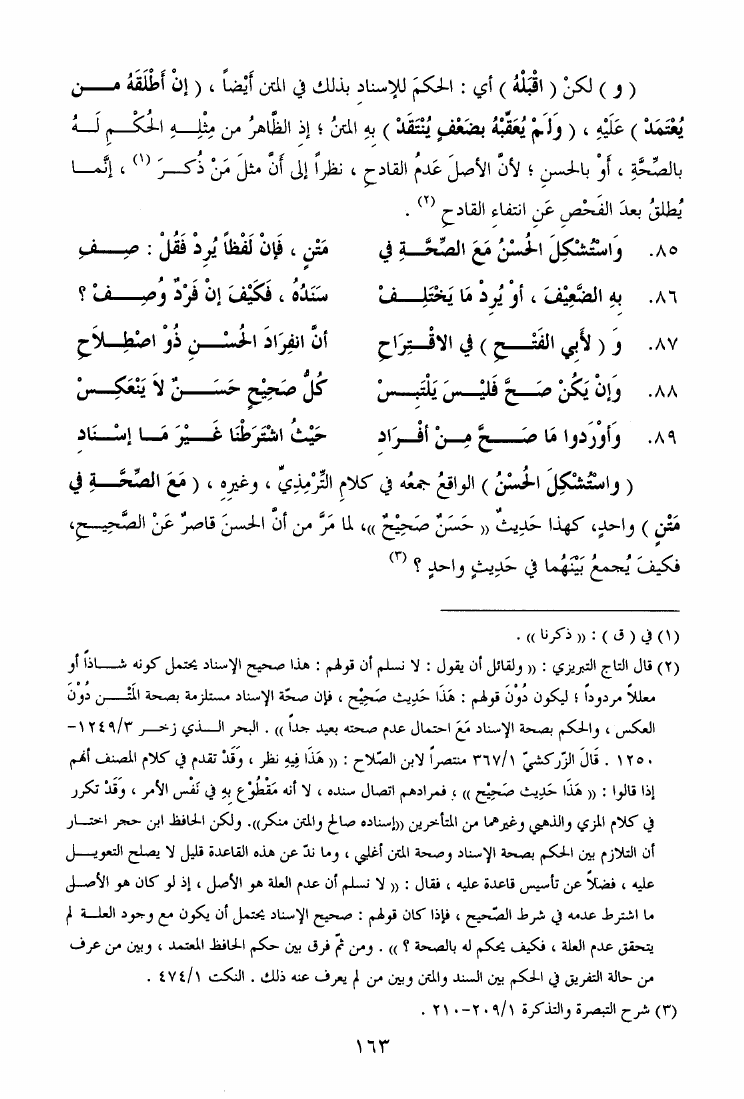 ( و ) لكنْ ( اقْبَلْهُ ) أي : الحكمَ للإسنادِ بذلك في المتن أَيْضاً ، ( إنْ أَطْلَقَهُ مــن
يُعْتَمَدْ ) عَلَيْهِ ، ( وَلَمْ يُعَقِّبْهُ بضَعْفٍ يُنْتَقَدْ ) بهِ المتنُ ؛ إذِ الظَّاهرُ من مِثْلِــهِ الحُكْــمِ لَــهُ
بالصِّحَّةِ ، أَوْ بالحسنِ ؛ لأنَّ الأصلَ عَدمُ القادحِ ، نظراً إلى أنَّ مثلَ مَنْ ذُكــرَ (١) ، إنَّمــا
يُطلقُ بعدَ الفَحْصِ عَنِ انتفاءِ القادحِ (٢) .
٨٥. وَاسْتُشْكِلَ الحُسْنُ مَعَ الصِّحَّــةِ في مَتْنٍ ، فَإِنْ لَفْظاً يُرِدْ فَقُلْ : صِــفِ
٨٦. بِهِ الضَّعِيْفَ ، أوْ يُرِدْ مَا يَخْتَلِــفْ سَنَدُهُ ، فَكَيْفَ إنْ فَرْدٌ وُصِــفْ ؟
٨٧. وَ ( لأَبِي الفَتْــحِ ) في الاقْــتِرَاحِ أنَّ انفِرَادَ الحُسْــنِ ذُوْ اصْطِــلاَحِ
٨٨. وَإنْ يَكُنْ صَــحَّ فَلَيْــسَ يَلْتَبِــسْ كُلُّ صَحِيْحٍ حَسَــنٌ لاَ يَنْعَكِــسْ
٨٩. وَأَوْرَدوا مَا صَــحَّ مِــنْ أفْــرَادِ حَيْثُ اشْتَرَطْنَا غَــيْرَ مَــا إسْــنَادِ
( واسْتُشْكِلَ الحُسْنُ ) الواقعُ جمعُه في كلامِ التِّرْمِذيِّ ، وغيرِه ، ( مَعَ الصِّحَّــةِ في
مَتْنٍ ) واحدٍ، كهذا حَدِيثٌ (( حَسَنٌ صَحِيْحٌ ))، لما مَرَّ من أنَّ الحسنَ قاصرٌ عَنْ الصَّحِيــحِ،
فكيفَ يُجمعُ بَيْنَهُما في حَدِيثٍ واحدٍ ؟ (٣)
(١) في ( ق ) : (( ذكرنا )) .
(٢) قال التاج التبريزي : (( ولقائل أن يقول : لا نسلم أن قولهم : هذا صحيح الإسناد يحتمل كونه شــاذاً أو
معللاً مردوداً ؛ ليكون دُوْنَ قولهم : هَذَا حَدِيث صَحِيْح ، فإن صحّة الإسناد مستلزمة بصحة المتْــن دُوْنَ
العكس ، والحكم بصحة الإسناد مَعَ احتمال عدم صحته بعيد جداً )) . البحر الــذي زخــر ١٢٤٩/٣-
١٢٥٠ . قَالَ الزّركشيّ ٣٦٧/١ منتصراً لابن الصّلاح : (( هَذَا فِيهِ نظر ، وَقَدْ تقدم في كلام المصنف أنهم
إذا قالوا : (( هَذَا حَدِيث صَحِيْح )) ؛ فمرادهم اتصال سنده ، لا أنه مَقْطُوْع بِهِ في نَفْس الأمر ، وَقَدْ تكرر
في كلام المزي والذهبي وغيرهما من المتأخرين ((إسناده صالح والمتن منكر)). ولكن الحافظ ابن حجر اختــار
أن التلازم بين الحكم بصحة الإسناد وصحة المتن أغلبي ، وما ندّ عن هذه القاعدة قليل لا يصلح التعويــل
عليه ، فضلاً عن تأسيس قاعدة عليه ، فقال : (( لا نسلم أن عدم العلة هو الأصل ، إذ لو كان هو الأصلى
ما اشترط عدمه في شرط الصّحيح ، فإذا كان قولهم : صحيح الإسناد يحتمل أن يكون مع وجود العلــة لم
يتحقق عدم العلة ، فكيف يحكم له بالصحة ؟ )) . ومن ثمّ فرق بين حكم الحافظ المعتمد ، وبين من عرف
من حالة التفريق في الحكم بين السند والمتن وبين من لم يعرف عنه ذلك . النكت ٤٧٤/١ .
(٣) شرح التبصرة والتذكرة ٢٠٩/١-٢١٠ .
١٦٣